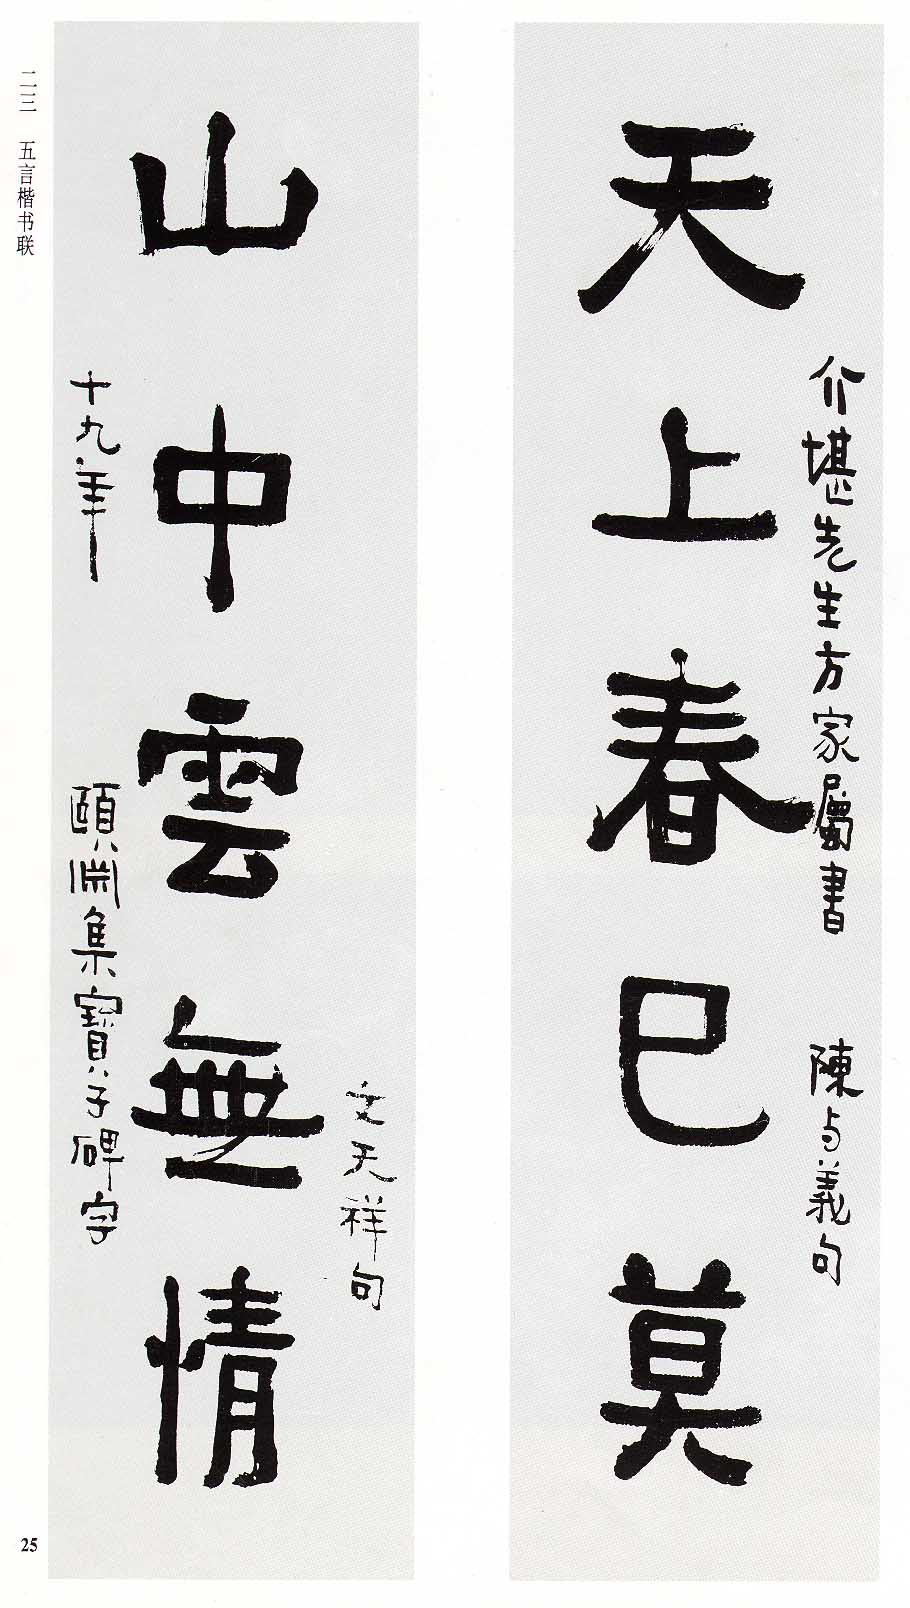 天上春已莫
介堪先生方家屬書 陳与義句
山中雲無情
文天祥句
十九年 頤淵集寶子碑字
二三 五言楷书联
25